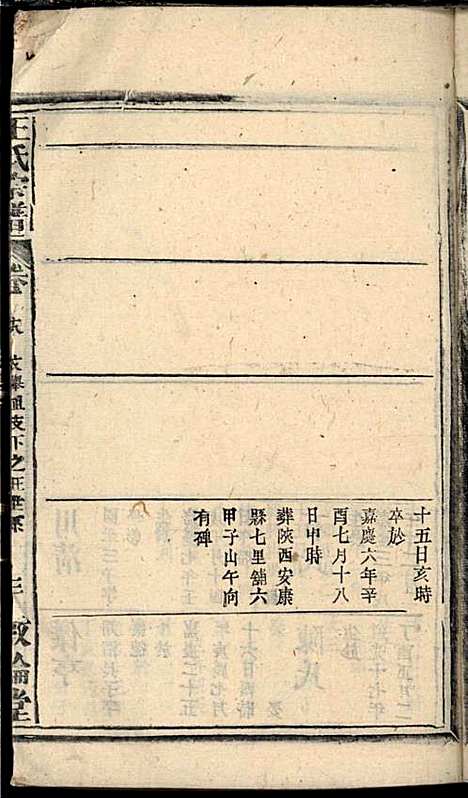 十五日亥時
卒於
嘉慶六年辛
酉七月十八
日申時
葬陝西安康
縣七里鋪六
甲子山午向
有碑
王氏宗譜
卷
支下之
三
敦倫堂